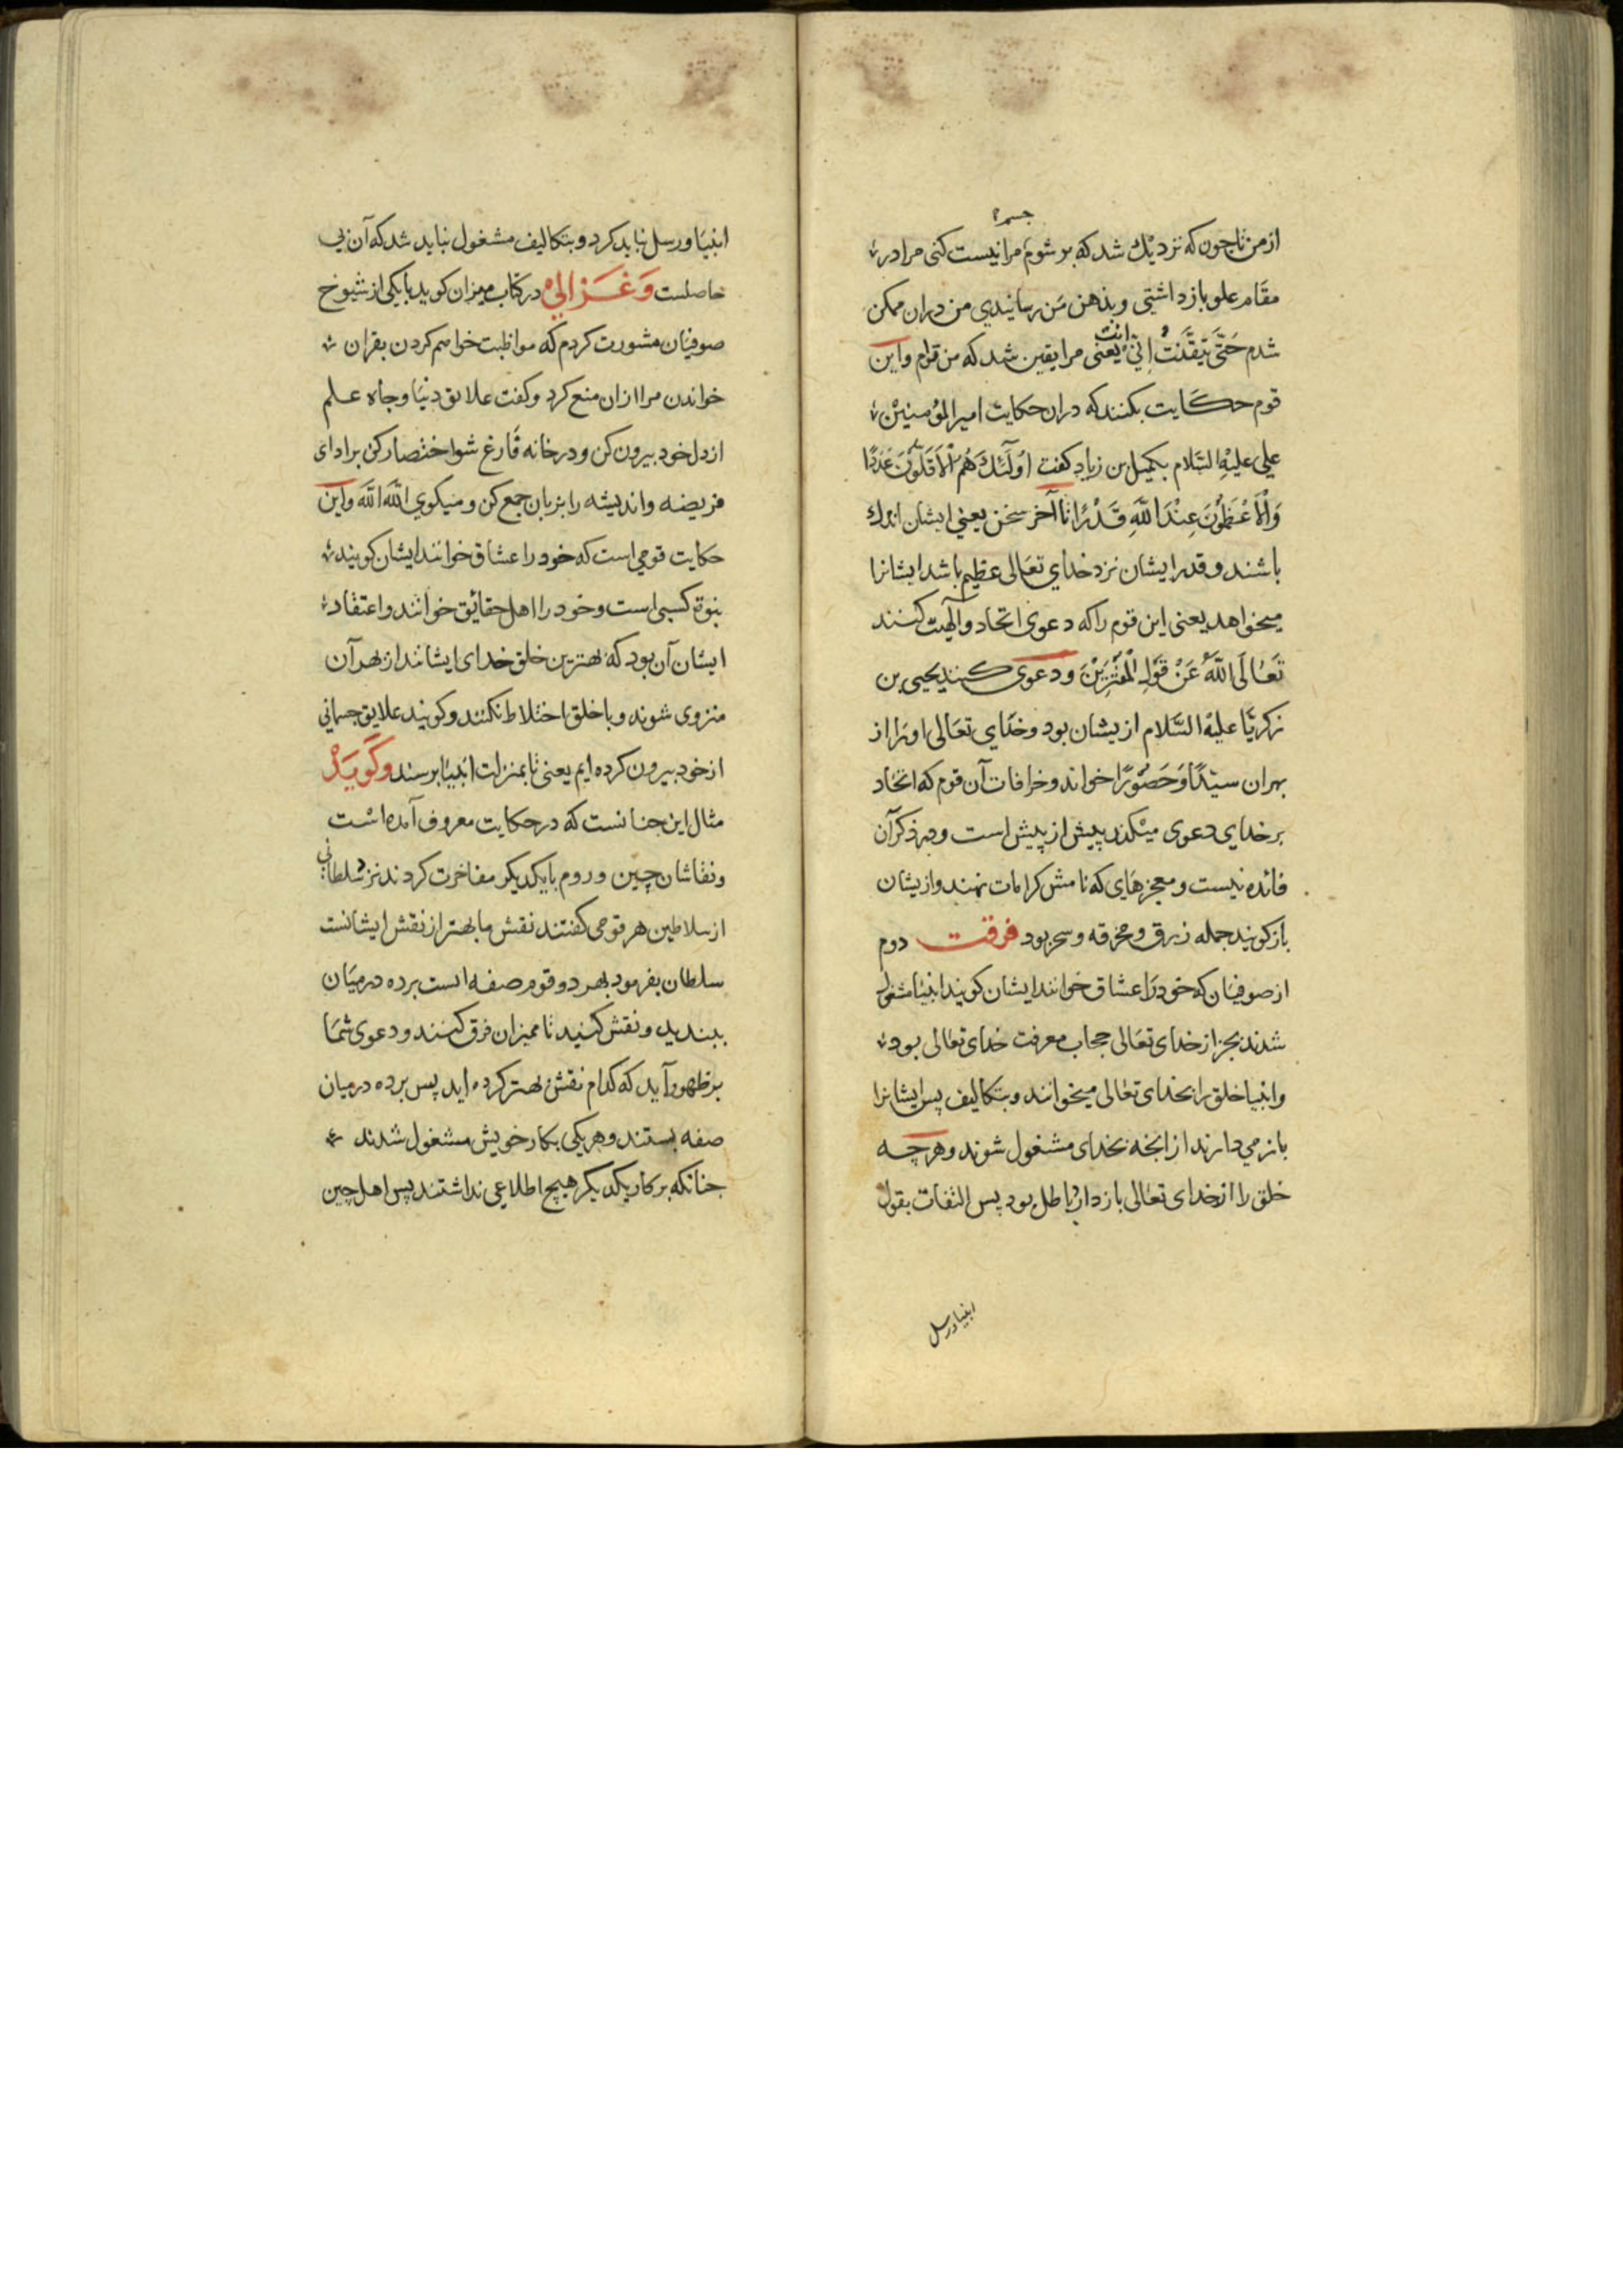 جسم؟
از من تا چون که نزدیك شد که بر شوم مرا نیست کنی مرا در
مقام علو باز داشتی و بذهن من رسانیدی من دران ممکن
شدم حَتّی تَیَقَّنتُ اِنّی انت یعنی مرا یقین شد که من توام و این
قوم حکایت بکنند که دران حکایت امیر المؤمنین
علی علیه السّلام بکمیل بن زیاد کفت اُولٓئكَ هُم الْاَقَلّونَ عَدَدًا
وَالْاَعْظَمُونَ عِنْدَ اللّٰهِ قَدْرًا تا آخر سخن یعنی ایشان اندك
باشند و قدر ایشان نزد خدای تعالی عظیم باشد ایشانرا
میخواهد یعنی این قوم را که دعوی اتحاد و الٓهیت کنند
تَعَالَی اللّٰهُ عَنْ قَوْلِ الْمُفْتَرِیْنَ و دعوی کنند یحیی بن
زکریّا علیه السّلام ازیشان بود و خدای تعالی او را از
بهر ان سیّدًا وَ حَصُوْرًا خواند و خرافات آن قوم که اتحاد
بر خدای دعوی میکنند بیش از پیش است و در ذکر آن
فائده نیست و معجزهای که نامش کرامات نهند و ازیشان
باز کویند جمله زرق و مخرقه و سحر بود فرقت دوم
از صوفیان که خود را عشاق خوانند ایشان کویند انبیا مشغول
شدند بجز از خدای تعالی حجاب معرفت خدای تعالی بود
و انبیا خلق را بخدای تعالی میخوانند و بتکالیف پس ایشانرا
باز می دارند از انجه بخدای مشغول شوند و هر چه
خلق را از خدای تعالی باز دارد باطل بود پس التفات بقول
انبیا و رسل
انبیا و رسل نباید کرد و بتکالیف مشغول نباید شد که آن بی
حاصلست وَغَزالی در کتاب میزان کوید با یکی از شیوخ
صوفیان مشورت کردم که مواظبت خواهم کردن بقران
خواندن مرا ازان منع کرد و کفت علایق دنیا و جاه علم
از دل خود بیرون کن و در خانه فارغ شو اختصار کن بر ادای
فریضه و اندیشه را بزبان جمع کن و میکوی اللّٰه اللّٰه و این
حکایت قومی است که خود را عشاق خوانند ایشان کویند
نبوة کسبی است و خود را اهل حقائق خوانند و اعتقاد
ایشان آن بود که بهترین خلق خدای ایشانند از بهر آن
منزوی شوند و با خلق اختلاط نکنند و کویند علایق جسمانی
از خود بیرون کرده ایم یعنی تا بمنزلت انبیا برسند وَکویَدْ
مثال این جنانست که در حکایت معروف آمده است
و نقاشان چین و روم با یکدیکر مفاخرت کردند نزد سلطانی
از سلاطین هر قومی کفتند نقش ما بهتر از نقش ایشانست
سلطان بفرمود بهر دو قوم صفه است برده در میان
ببندید و نقش کنید تا ممیزان فرق کنند و دعوی شما
بو ظهور آید که کدام نقش بهتر کرده اید پس برده در میان
صفه بستند و هر یکی بکار خویش مشغول شدند
جنانکه بر کار یکدیکر هیچ اطلاعی نداشتند پس اهل چین